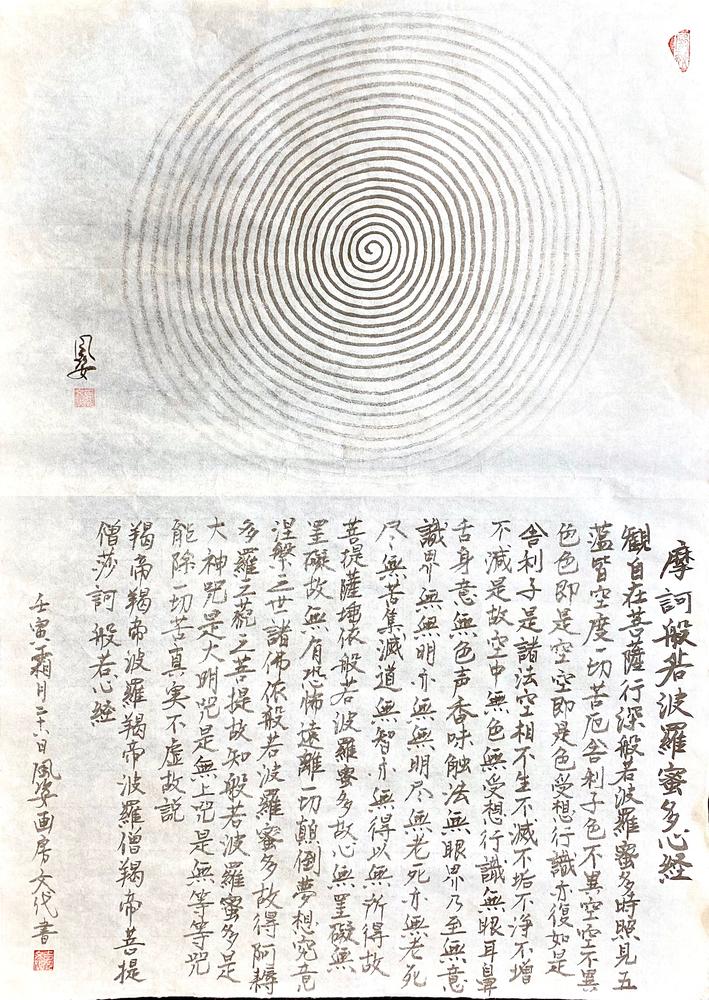 摩訶般若波羅蜜多心経
観自在菩薩行深般若波羅蜜多時照見五
蘊皆空度一切苦厄舎利子色不異空空不異
色色即是空空即是色受想行識亦復如是
舎利子是諸法空相不生不滅不垢不浄不増
不減是故空中無色無受想行識無眼耳鼻
舌身意無色声香味触法無眼界乃至無意
識界無無明亦無無明尽無老死亦無老死
尽無苦集滅道無智亦無得以無所得故
菩提薩埵依般若波羅蜜多故心無罣礙無
罣礙故無有恐怖遠離一切顛倒夢想究竟
涅槃三世諸佛依般若波羅蜜多故得阿耨
多羅三藐三菩提故知般若波羅蜜多是
大神咒是大明咒是無上咒是無等等咒
能除一切苦真実不虚故説
羯帝羯帝波羅羯帝波羅僧羯帝菩提
僧莎訶 般若心経
壬寅霜月二十日風姿画房文代書
風姿